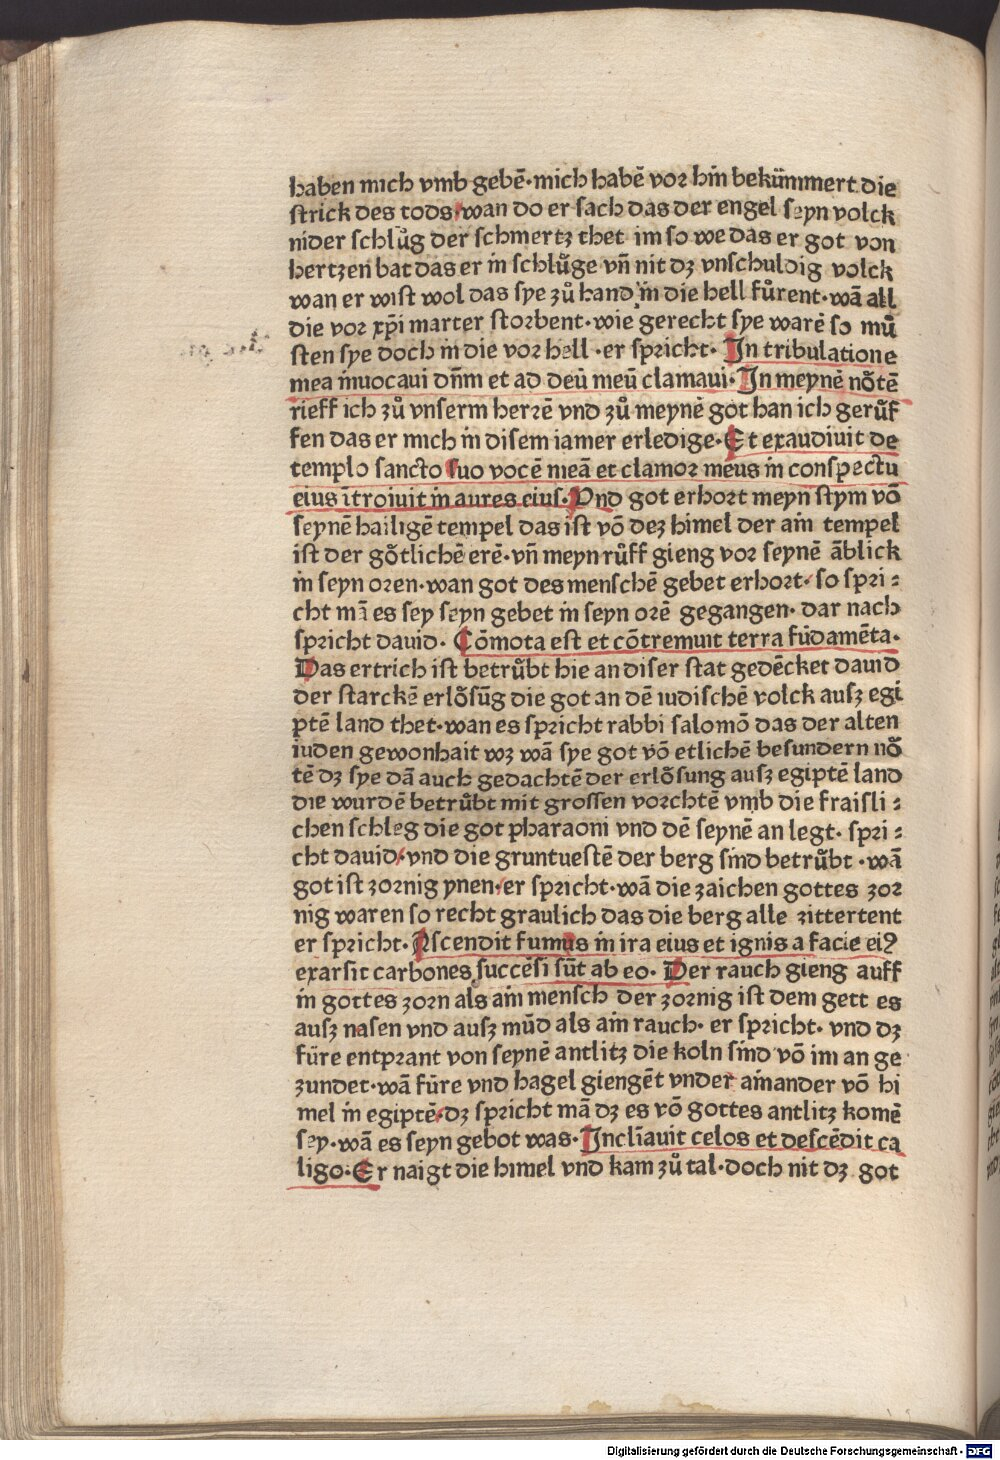 haben mich vmb gebē·mich habē vor hin bekümmert die
strick des tods·wan do er sach das der engel seyn volck
nider schlůg der schmertz thet im so we das er got von
hertzen bat das er in schlůge vn̄ nit dz vnschuldig volck
wan er wist wol das sye zů hand in die hell fůrent·wā all
die vor xp̄i marter storbent·wie gerecht sye warē so mů
sten sye doch in die vor hell·er spricht· In tribulatione
mea inuocaui dn̄m et ad deū meū clamaui·In meynē nȏtē
rieff ich zů vnserm herrē vnd zů meynē got han ich gerůf
fen das er mich in disem iamer erledige·Et exaudiuit de
templo sancto suo vocē meā et clamor meus in conspectu
eius ītroiuit in aures eius·Vnd got erhort meyn stym vō
seynē hailigē tempel das ist vō dez himel der ain tempel
ist der gȏtlichē erē·vn̄ meyn růff gieng vor seynē āblick
in seyn oren·wan got des menschē gebet erhort· so spri:
cht mā es sey seyn gebet in seyn orē gegangen· dar nach
spricht dauid· Cōmota est et cōtremuit terra fūdamēta·
Das ertrich ist betrůbt hie an diser stat gedēcket dauid
der starckē erlȏsūg die got an dē iudischē volck ausz egi
ptē land thet·wan es spricht rabbi salomō das der alten
iuden gewonhait wz wā sye got vō etlichē besundern nȏ
tē dz sye dā auch gedachtē der erlȏsung ausz egiptē land
die wurdē betrůbt mit grossen vorchtē vmb die fraisli:
chen schleg die got pharaoni vnd dē seynē an legt· spri:
cht dauid·vnd die gruntuestē der berg sind betrůbt·wā
got ist zornig ynen·er spricht·wā die zaichen gottes zor
nig waren so recht graulich das die berg alle zittertent
er spricht·Ascendit fumus in ira eius et ignis a facie eiꝰ
exarsit carbones succēsi sūt ab eo· Der rauch gieng auff
in gottes zorn als ain mensch der zornig ist dem gett es
ausz nasen vnd ausz mūd als ain rauch· er spricht· vnd dz
füre entprant von seynē antlitz die koln sind vō im an ge
zundet·wā füre vnd hagel giengēt vnder ainander vō hi
mel in egiptē·dz spricht mā dz es vō gottes antlitz komē
sey·wā es seyn gebot was·Inclīauit celos et descēdit ca
ligo·Er naigt die himel vnd kam zů tal·doch nit dz got
Digitalisierung gefördert durch die Deutsche Forschungsgemeinschaft · DFG